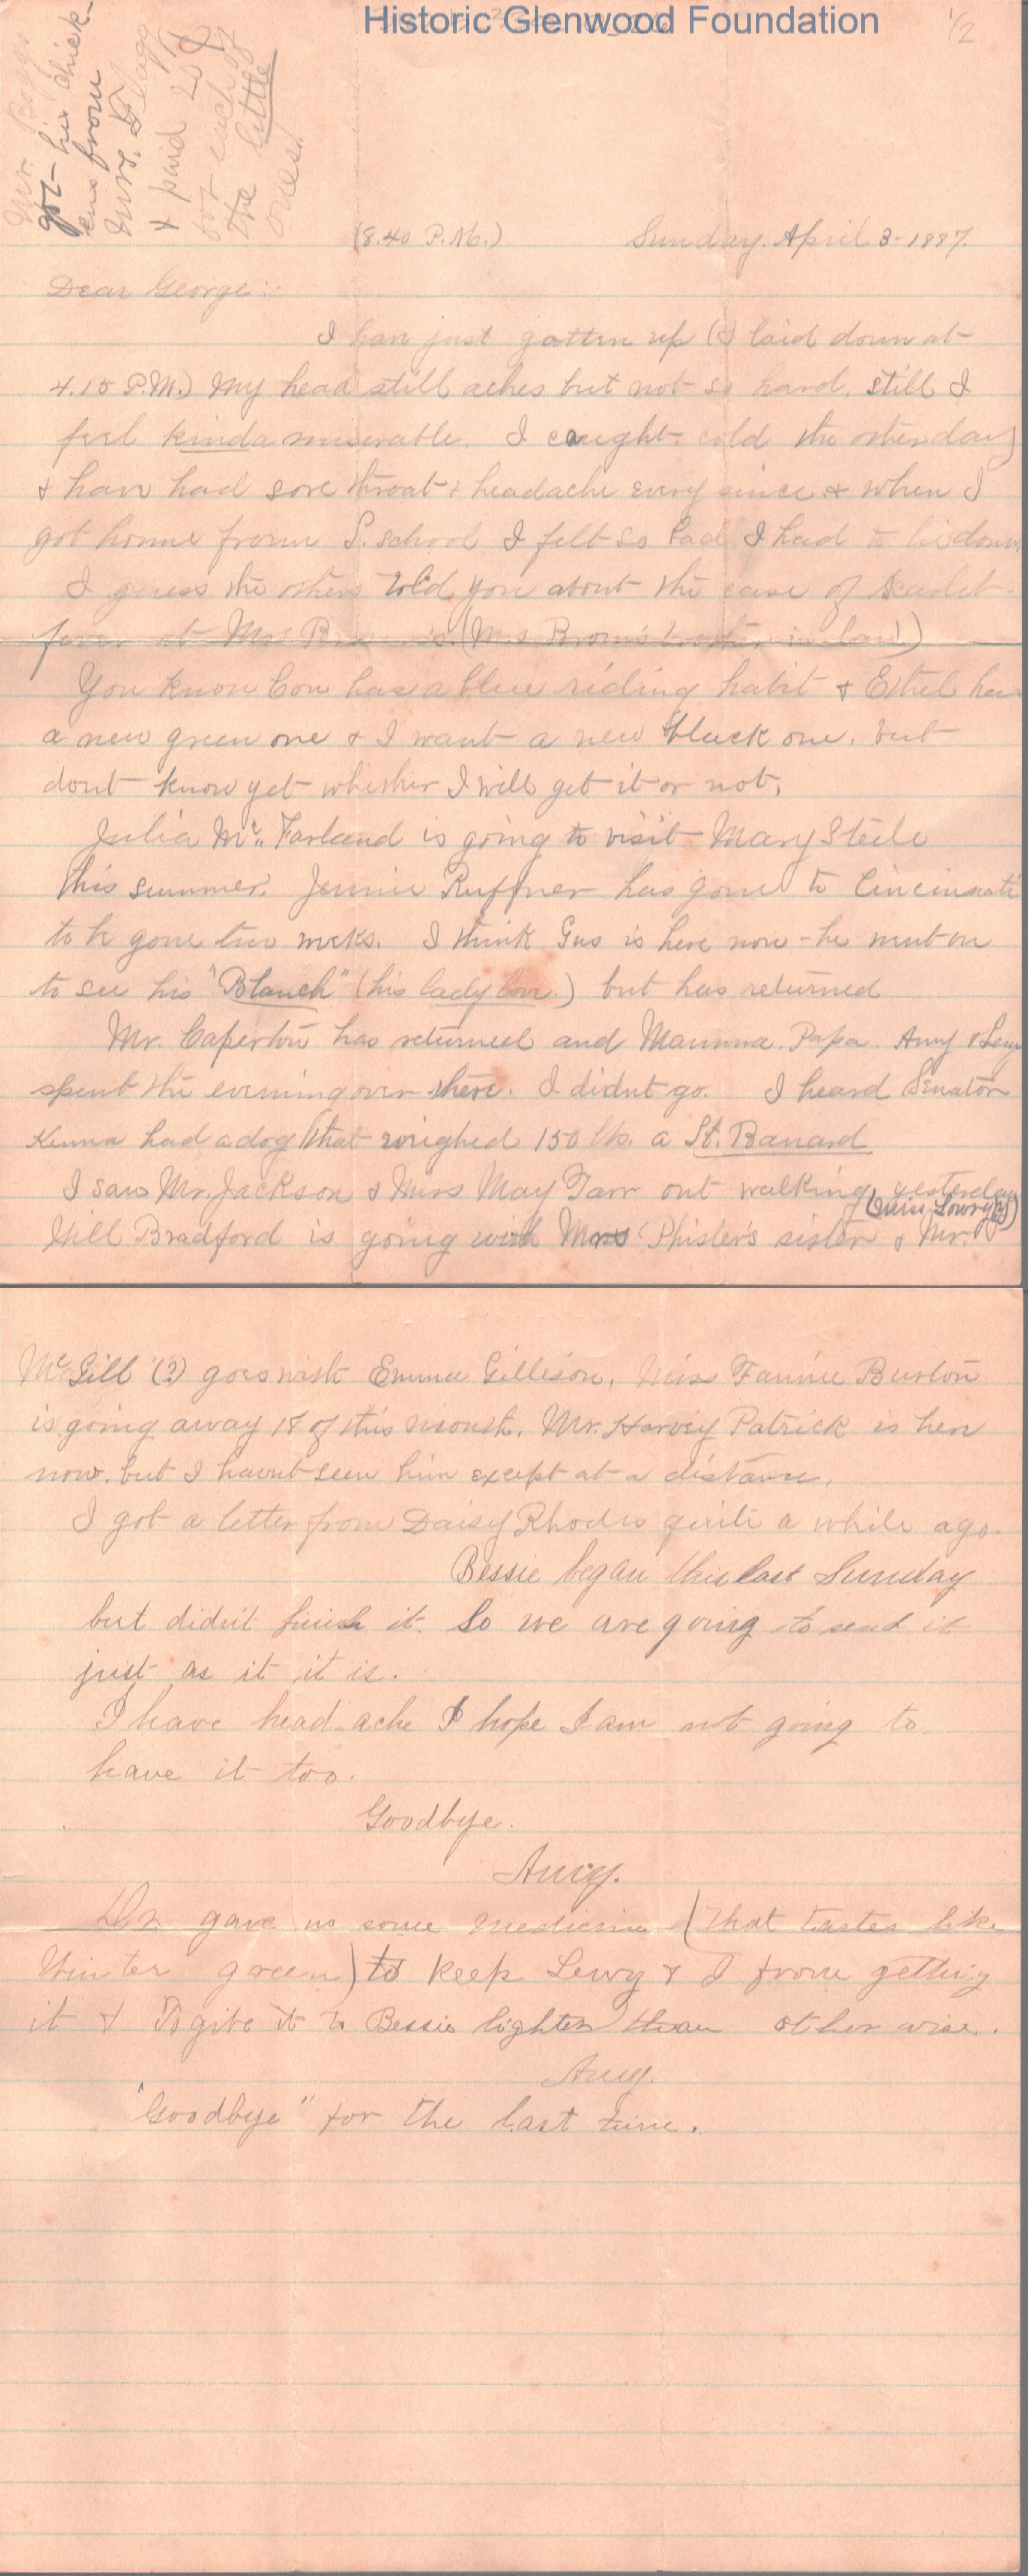 Historic Glenwood Foundation
1/2
Mr. Boggs
got his chick-
ens from
Mrs. Flagg
& paid 20¢
for each of
the little
ones!
(8.40 P.M.) Sunday. April 3- 1887.
Dear George:-
I have just gotten up (I laid down at
4.15 P.M.) My head still aches but not so hard, still I
feel kinda miserable. I caught cold the other day
& have had sore throat & headache every since & when I
got home from S. school I felt so bad I had to lie down
I guess the others told you about the case of Scarlet
fever at Mrs (Mrs Brown's brother in law)
You know Con has a blue riding habit & Ethel has
a new green one & I want a new black one, but
dont know yet whether I will get it or not,
Julia Mc. Farland is going to visit Mary Steele
this summer. Jennie Ruffner has gone to Cincinnati
to be gone two weeks. I think Gus is here now - he went on
to see his "Blanch" (his lady love.) but has returned
Mr. Caperton has returned and Mamma. Papa. Amy & Lewy
spent the evening over there. I didnt go. I heard Senator
Kenna had a dog that weighed 150 lbs. a St. Banard
I saw Mr. Jackson & Miss May Tarr out walking yesterday
(Miss Lowry(?))
Will Bradford is going with Mrs Phister's sister & Mr.
McGill (?) goes with Emma Gillison, Miss Fannie Burton
is going away 18 of this month. Mr. Harvey Patrick is here
now, but I havnt seen him except at a distance.
I got a letter from Daisy Rhodes quite a while ago.
Bessie began this last Sunday
but didn't finish it. So we are going to send it
just as it it is.
I have head-ache I hope I am not going to
have it too.
Goodbye.
Amy.
Dr. gave us some medicine (that tastes like
Winter green) to keep Lewy & I from getting
it & to give it to Bessie lighter than other wise.
Amy.
"Goodbye" for the last time.